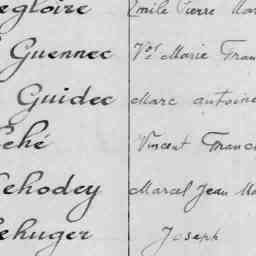 egloire Emile Pierre Mar
Guennec Vor Marie Fran
Guidec Marc antoine
ehé Vincent Franc
ehodey Marcel Jean Ma
ehuger Joseph